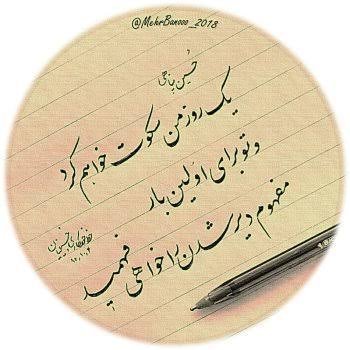 @MehrBanooo_2018
حسین پناهی
یک روز من سکوت خواهم کرد
و تو برای اولین بار
مفهوم دیر شدن را خواهی فهمید